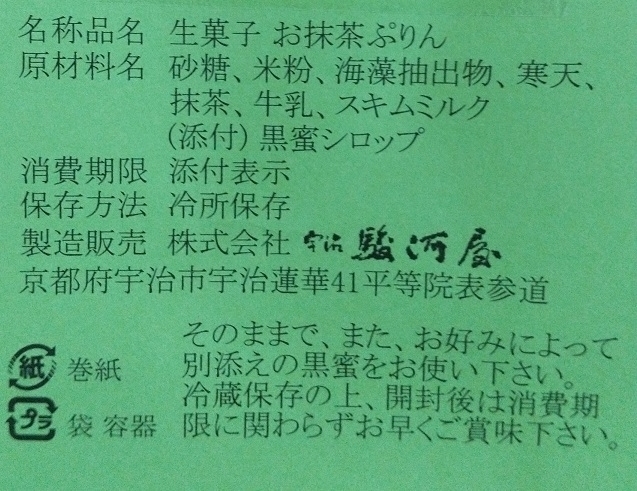 名称品名 生菓子 お抹茶ぷりん
原材料名 砂糖、米粉、海藻抽出物、寒天、
抹茶、牛乳、スキムミルク
(添付) 黒蜜シロップ
消費期限 添付表示
保存方法 冷所保存
製造販売 株式会社 宇治 駿河屋
京都府宇治市宇治蓮華41平等院表参道
そのままで、また、お好みによって
別添えの黒蜜をお使い下さい。
冷蔵保存の上、開封後は消費期
限に関わらずお早くご賞味下さい。
紙 巻紙
プラ 袋 容器